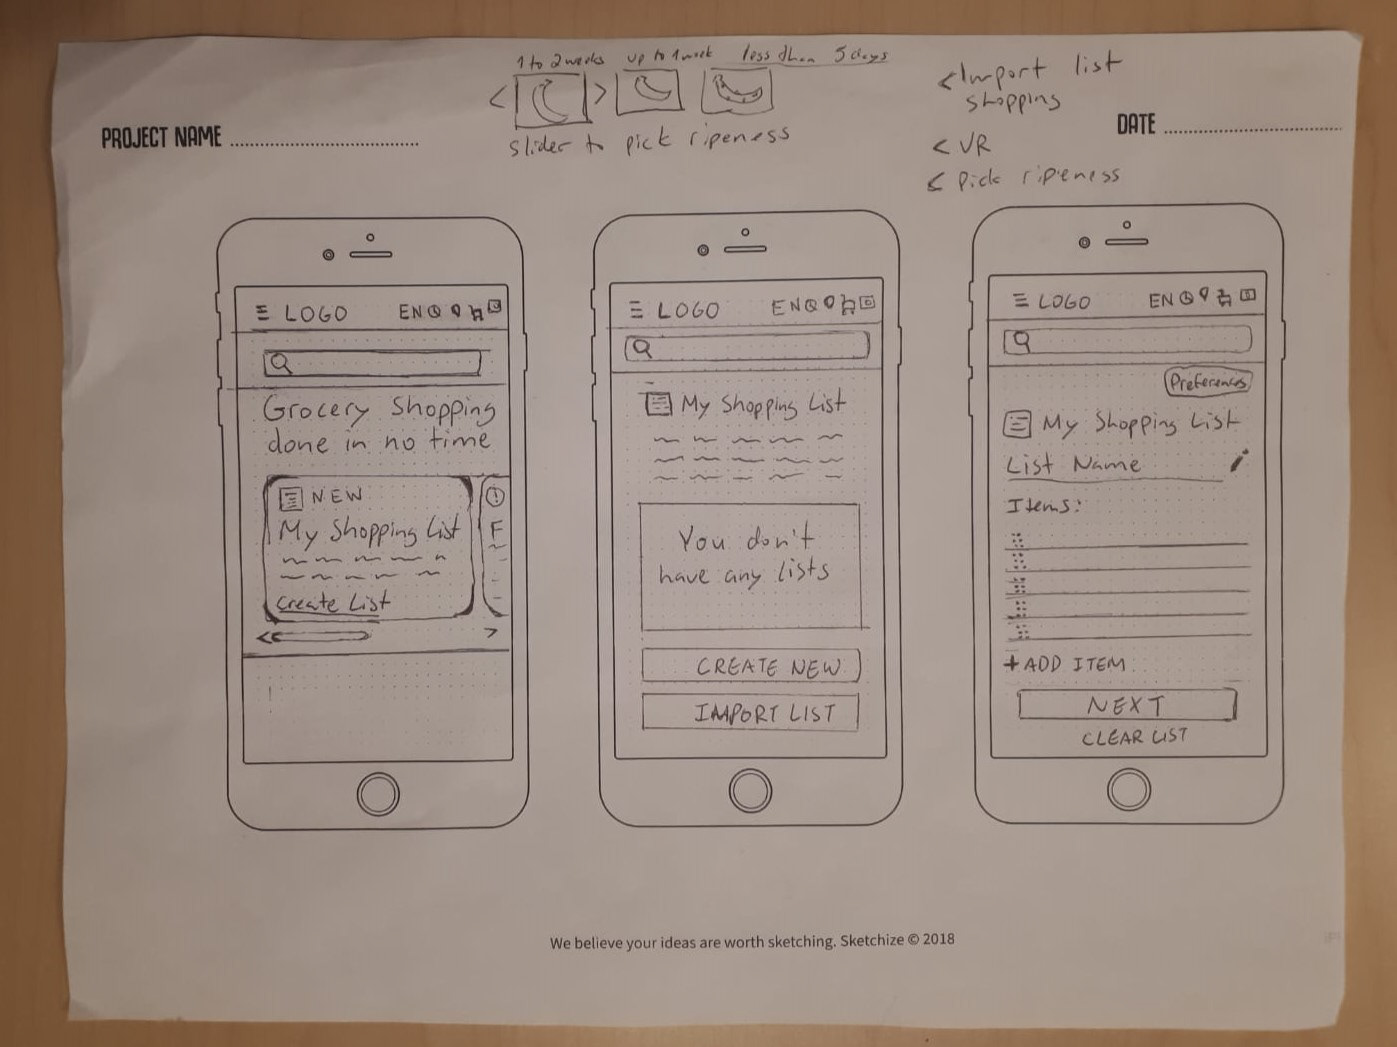 1 to 2 weeks up to 1 week less than 5 days
< >
slider to pick ripeness
< Import list
shopping
< VR
< Pick ripeness
PROJECT NAME
DATE
LOGO EN
Grocery Shopping
done in no time
NEW
My Shopping List
Create List
F
< >
LOGO EN
My Shopping List
You don't
have any lists
CREATE NEW
IMPORT LIST
LOGO EN
Preferences
My Shopping List
List Name
Items:
+ ADD ITEM
NEXT
CLEAR LIST
We believe your ideas are worth sketching. Sketchize © 2018